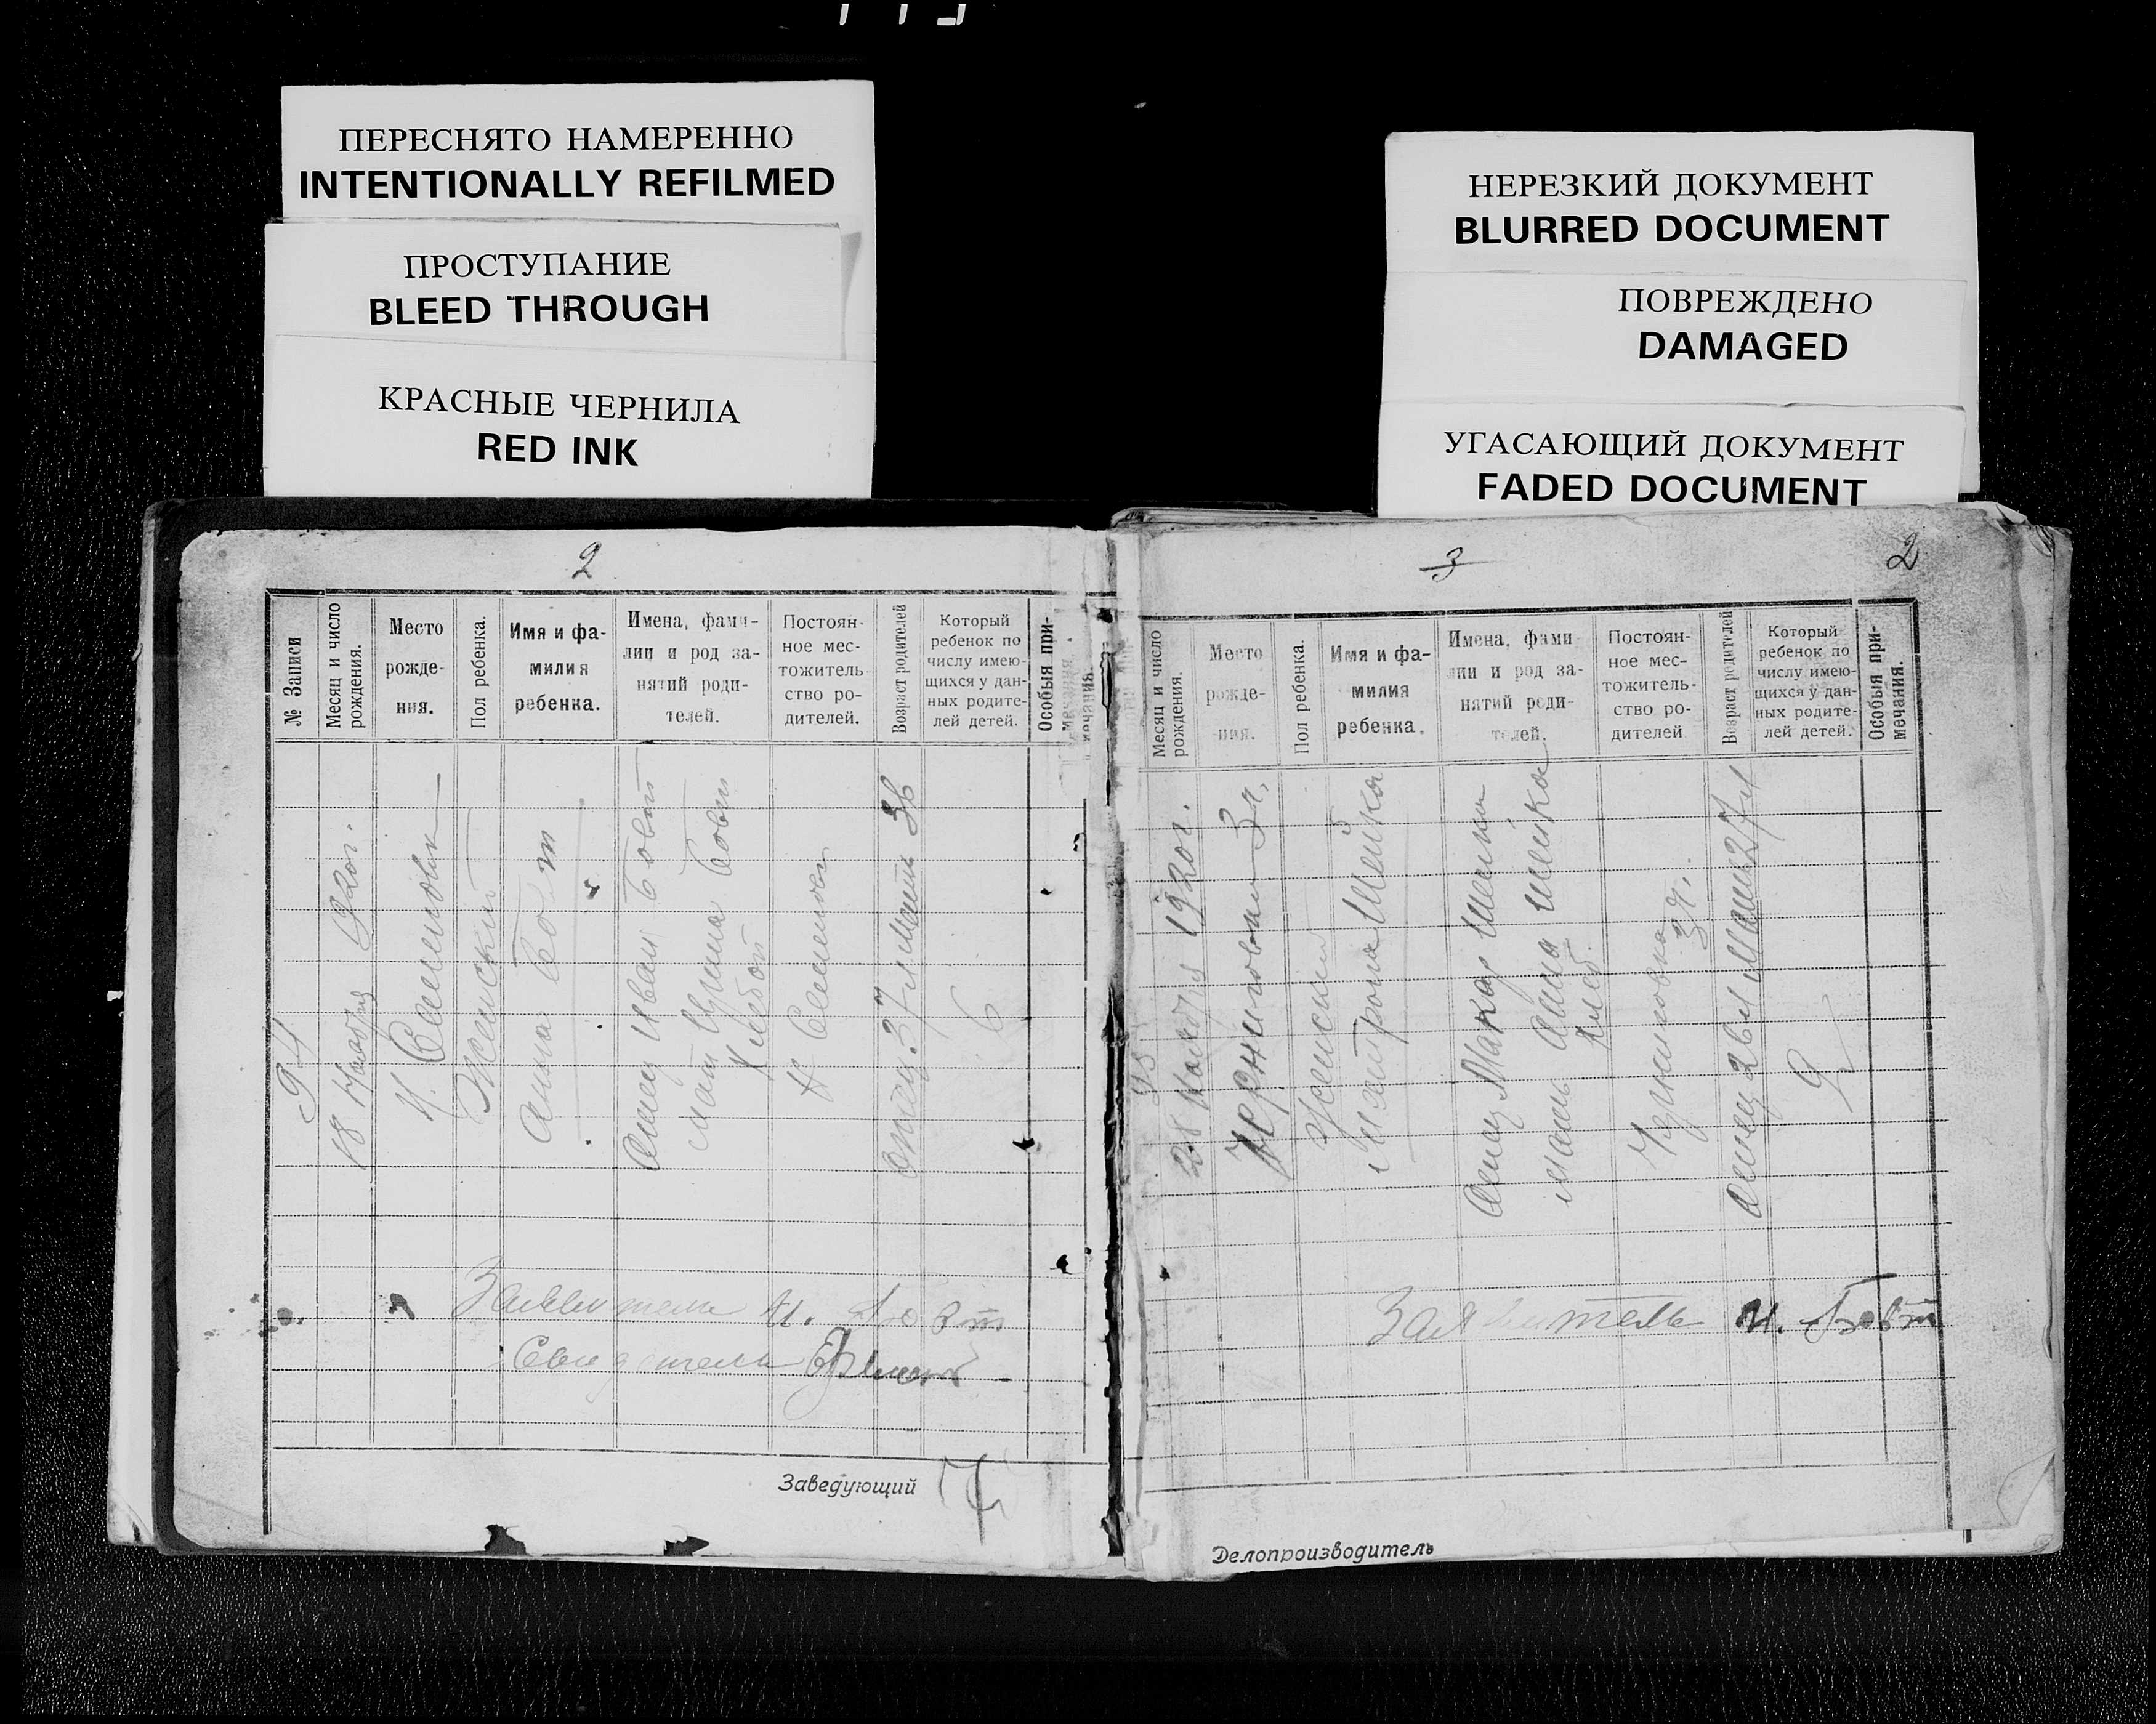 ПЕРЕСНЯТО НАМЕРЕННО
INTENTIONALLY REFILMED
ПРОСТУПАНИЕ
BLEED THROUGH
КРАСНЫЕ ЧЕРНИЛА
RED INK
НЕРЕЗКИЙ ДОКУМЕНТ
BLURRED DOCUMENT
ПОВРЕЖДЕНО
DAMAGED
УГАСАЮЩИЙ ДОКУМЕНТ
FADED DOCUMENT
2
№ Записи
Месяц и число
рождения.
Место
рожде-
ния.
Пол ребенка.
Имя и фа-
милия
ребенка.
Имена, фами-
лии и род за-
нятий роди-
телей.
Постоян-
ное мес-
тожитель
ство ро-
дителей.
Возраст родителей
Который
ребенок по
числу имею-
щихся у дан-
ных родите-
лей детей.
Особыя при-
мечания.
94
18 Ноября 1920г.
Женский
Анна
Отец Иван Бовт
мать Бовт
Отец 37 л Мать 36
6
Заявитель И. Бовт
Свидетель
Заведующий
3
2
Месяц и число
рождения.
Место
рожде-
ния.
Пол ребенка.
Имя и фа-
милия
ребенка.
Имена, фами
лии и род за-
нятий роди-
телей.
Постоян-
ное мес-
тожитель-
ство ро-
дителей
Возраст родителей
Который
ребенок по
числу имею-
щихся у дан-
ных родите-
лей детей.
Особыя при-
мечания.
95
28 Ноября 1920г.
Женский
Шейка
Отец Макар Шейка
мать Анна Шейка
Отец 26 л Мать 27 л
2
Заявитель И. Бовт
Делопроизводитель